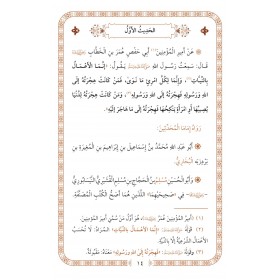 الحديث الأول
عن أمير المؤمنين أبي حفص عمر بن الخطاب
قال: سمعت رسول الله ﷺ يقول: «إنما الأعمال
بالنيات، وإنما لكل امرئ ما نوى، فمن كانت هجرته إلى
الله ورسوله فهجرته إلى الله ورسوله، ومن كانت هجرته لدنيا
يصيبها أو امرأة ينكحها فهجرته إلى ما هاجر إليه».
رواه إماما المحدثين:
أبو عبد الله محمد بن إسماعيل بن إبراهيم بن المغيرة بن
بردزبه البخاري
وأبو الحسين مسلم بن الحجاج بن مسلم القشيري النيسابوري
في «صحيحيهما» اللذين هما أصح الكتب المصنفة.
(١) (أمير المؤمنين عمر) هو أول من سمي أمير المؤمنين.
(٢) قوله ﷺ «إنما الأعمال بالنيات» المراد: لا تحسب
الأعمال الشرعية إلا بالنية.
(٣) قوله ﷺ «فهجرته إلى الله ورسوله» معناه: مقبولة.
١٤